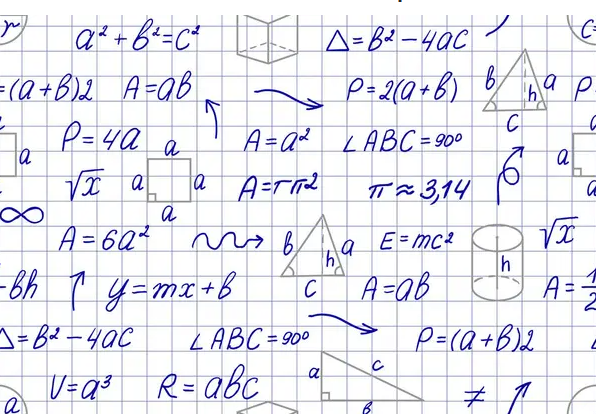 r a² + b² = c² Δ = b² − 4ac c=
=(a+b)2 A = ab P = 2(a+b) b h a c P=
P = 4a A = a² ∠ABC = 90°
a √x a a a a A = rπ2 π ≈ 3,14 a
∞ A = 6a² b h a c E = mc² √x
bh y = mx + b A = ab h A = 1/2
Δ = b² − 4ac ∠ABC = 90° P = (a+b)2
V = a³ R = abc a c b ≠
a